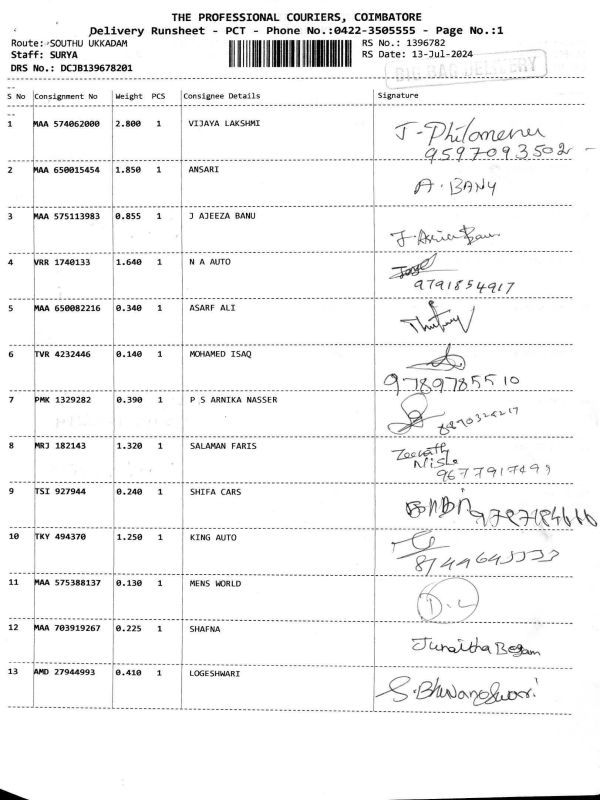 THE PROFESSIONAL COURIERS, COIMBATORE
Delivery Runsheet - PCT - Phone No.:0422-3505555 - Page No.:1
Route: SOUTHU UKKADAM RS No.: 1396782
Staff: SURYA RS Date: 13-Jul-2024
DRS No.: DCJB139678201
BIG BAG DELIVERY
S No Consignment No Weight PCS Consignee Details Signature
1 MAA 574062000 2.800 1 VIJAYA LAKSHMI J-Philomena
9597093502
2 MAA 650015454 1.850 1 ANSARI A. BANY
3 MAA 575113983 0.855 1 J AJEEZA BANU
4 VRR 1740133 1.640 1 N A AUTO
9791854917
5 MAA 650082216 0.340 1 ASARF ALI
6 TVR 4232446 0.140 1 MOHAMED ISAQ
9789785510
7 PMK 1329282 0.390 1 P S ARNIKA NASSER
8 MRJ 182143 1.320 1 SALAMAN FARIS Zeenath
Nisha
9677917499
9 TSI 927944 0.240 1 SHIFA CARS
10 TKY 494370 1.250 1 KING AUTO
11 MAA 575388137 0.130 1 MENS WORLD
12 MAA 703919267 0.225 1 SHAFNA Junaitha Begam
13 AMD 27944993 0.410 1 LOGESHWARI S. Bhuvaneswari